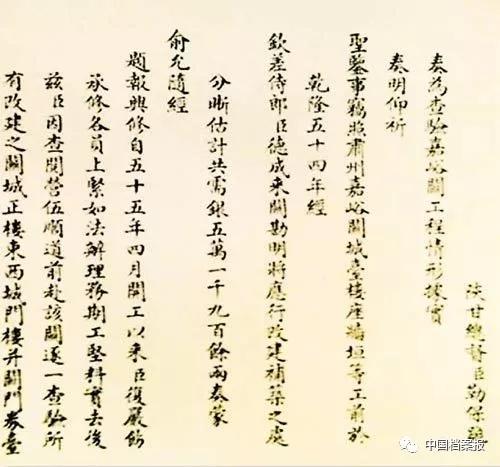 陝甘總督臣勒保謹
奏為查驗嘉峪關工程情形據實
奏明仰祈
聖鑒事竊照肅州嘉峪關城臺樓座牆垣等工前於
乾隆五十四年經
欽差侍郎臣德成來關勘明將應行改建補築之處
分晰估計共需銀五萬一千九百餘兩奏蒙
俞允隨經
題報興修自五十五年四月開工以來臣復嚴飭
承修各員上緊如法辦理務期工堅料實去後
茲臣因查閱營伍順道前赴該關逐一查驗所
有改建之關城正樓東西城門樓并關門券臺
中国档案报